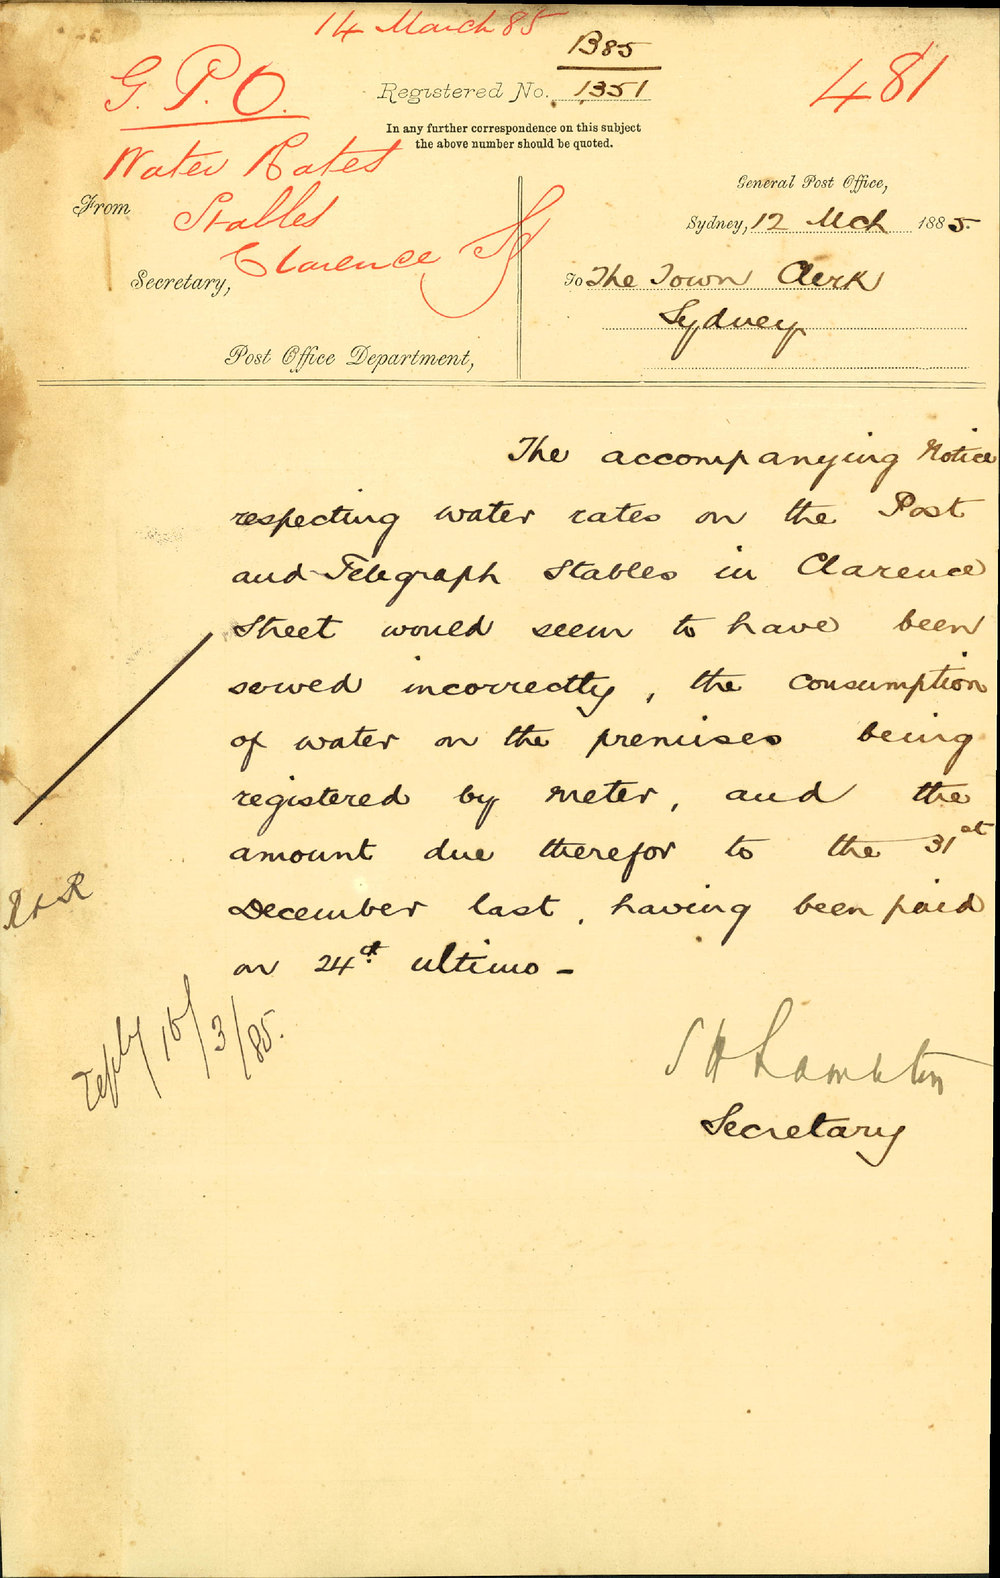 14 March 85
B85
Registered No. 1351
481
G. P. O.
In any further correspondence on this subject
the above number should be quoted.
Water Rates
General Post Office,
From
Stables
Sydney, 12 Mch 1885.
Clarence St
Secretary,
To The Town Clerk
Sydney
Post Office Department,
The accompanying Notice
respecting water rates on the Post
and Telegraph Stables in Clarence
Street would seem to have been
served incorrectly, the consumption
of water on the premises being
registered by meter, and the
amount due therefor to the 31st
December last, having been paid
on 24th ultimo -
S H Lambton
Secretary
reply 16/3/85.